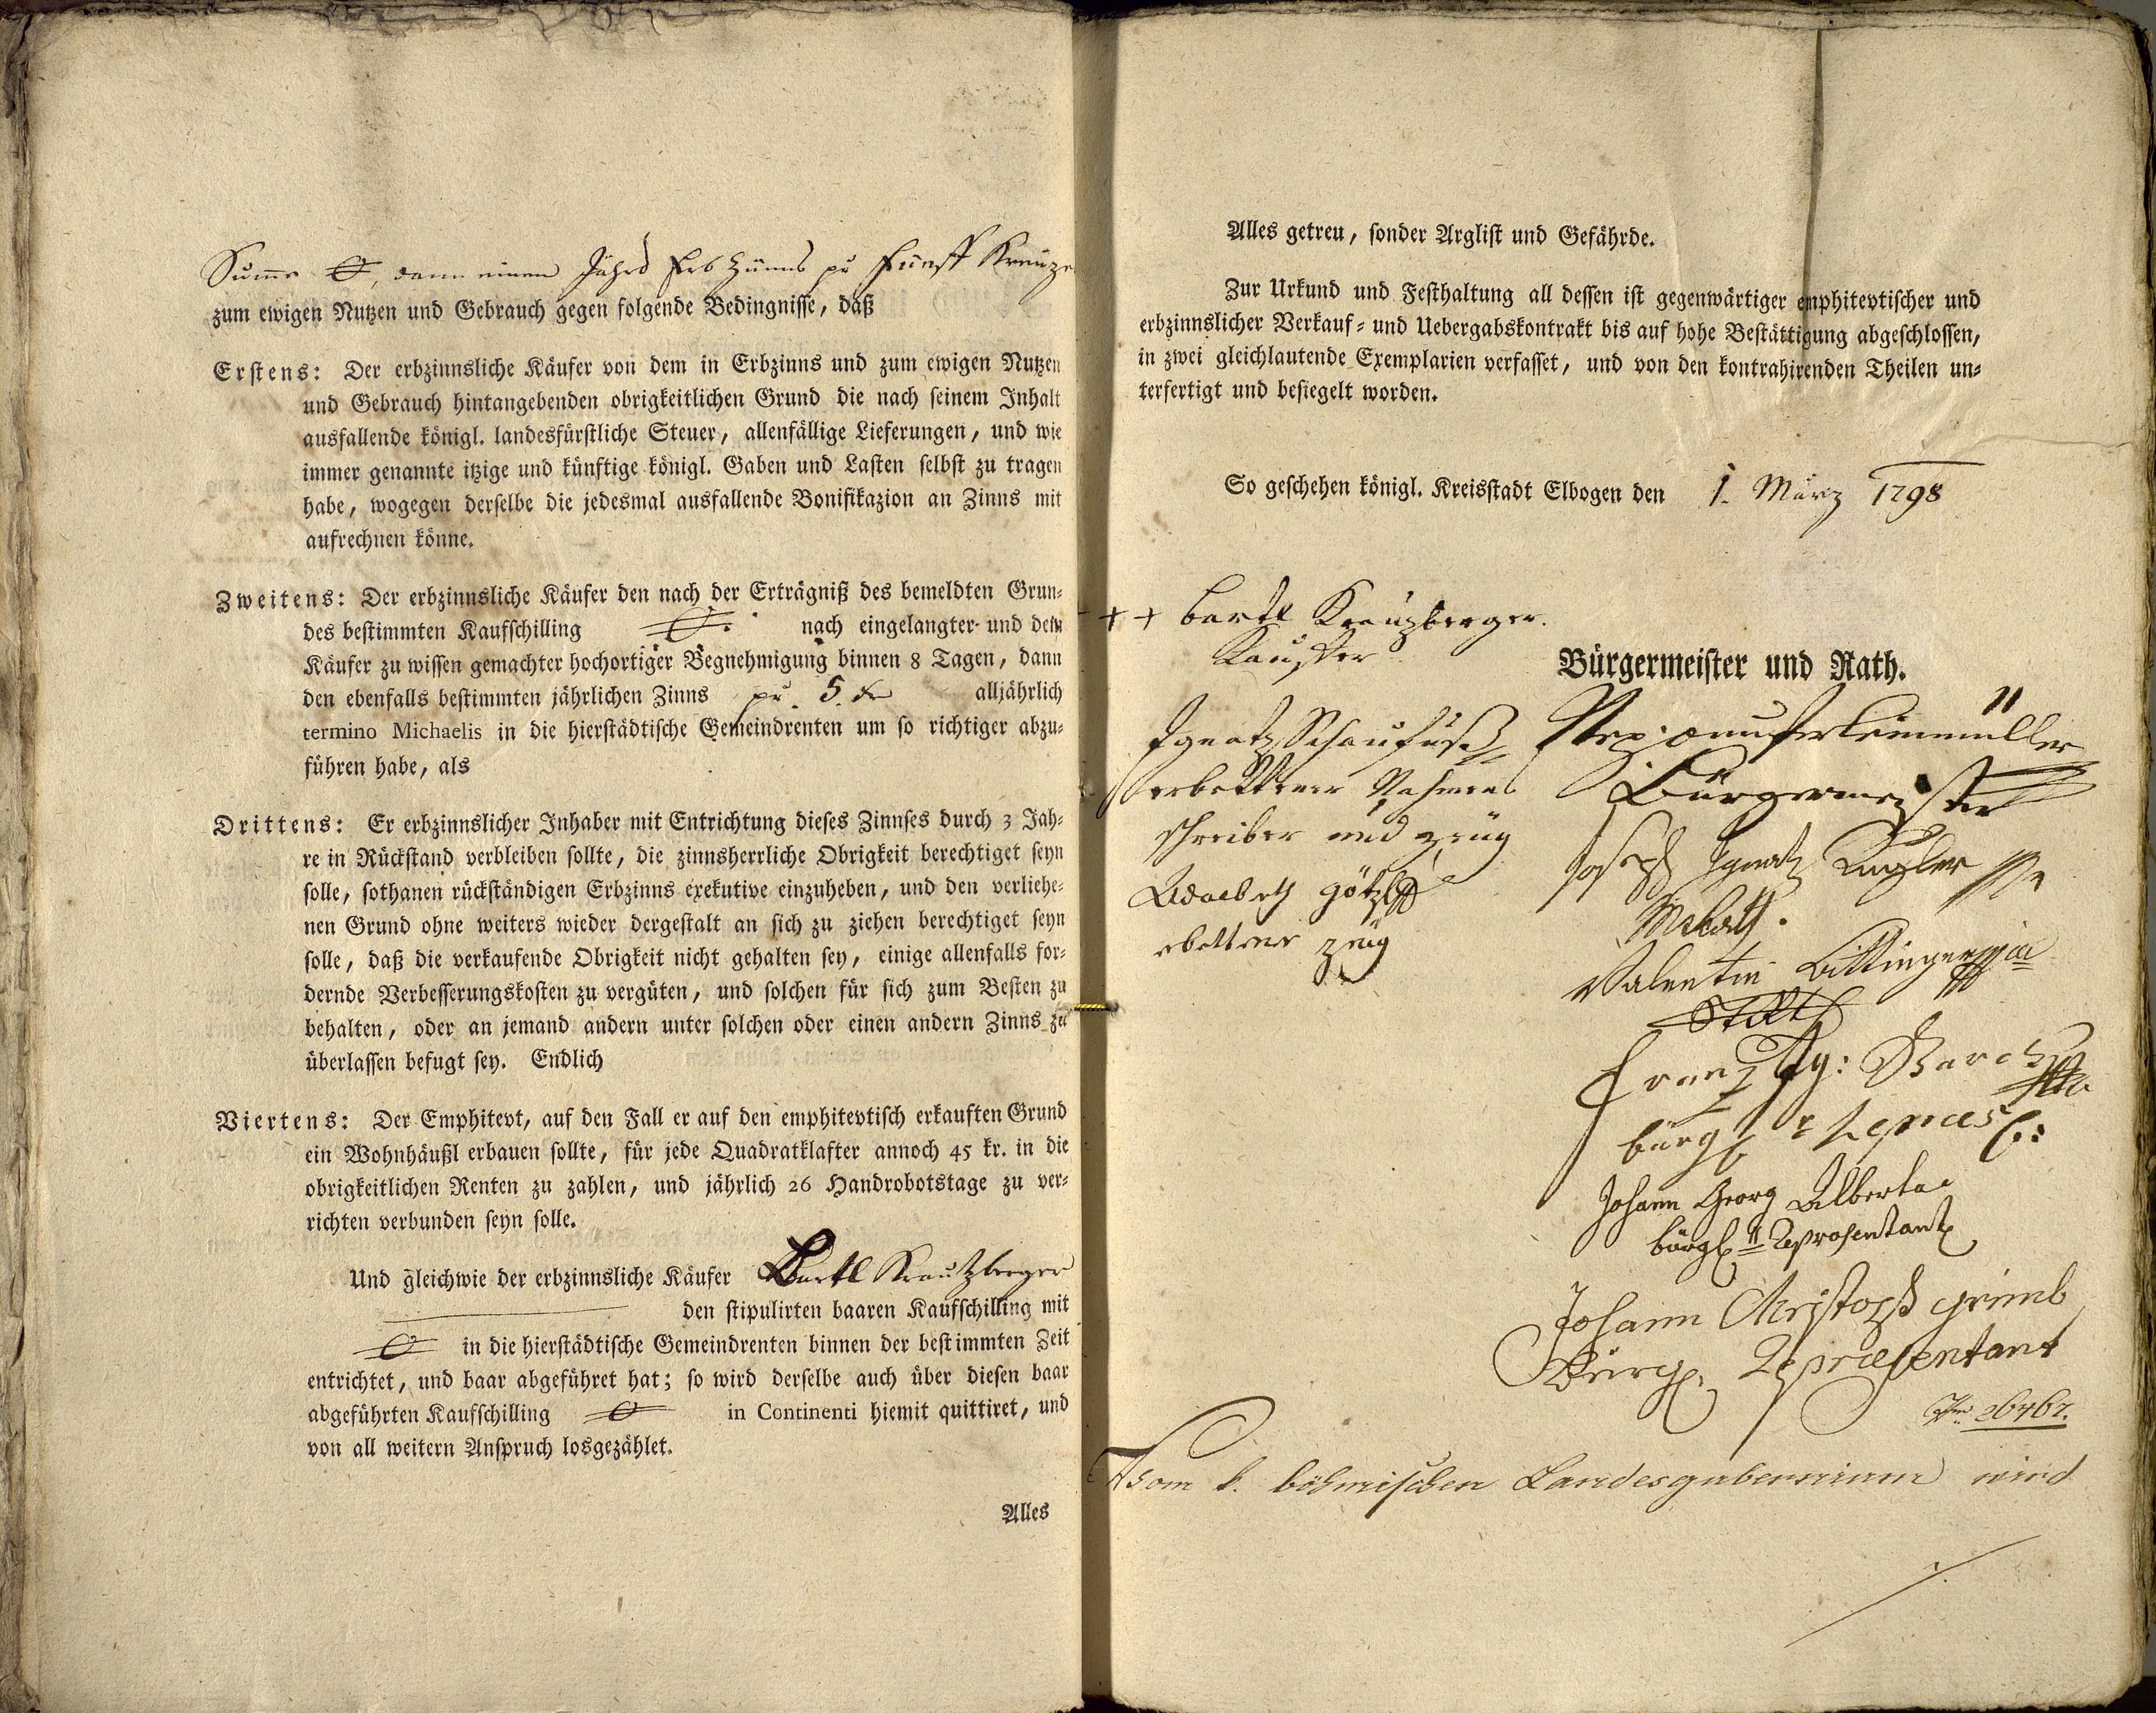 Summe 0, dann einen Jährl Erb Zünns pr fünff Kreuze
zum ewigen Nutzen und Gebrauch gegen folgende Bedingnisse, daß
Erstens: Der erbzinnsliche Käufer von dem in Erbzinns und zum ewigen Nutzen
und Gebrauch hintangebenden obrigkeitlichen Grund die nach seinem Inhalt
ausfallende königl. landesfürstliche Steuer, allenfällige Lieferungen, und wie
immer genannte itzige und künftige königl. Gaben und Lasten selbst zu tragen
habe, wogegen derselbe die jedesmal ausfallende Bonifikazion an Zinns mit
aufrechnen könne.
Zweitens: Der erbzinnsliche Käufer den nach der Erträgniß des bemeldten Grun-
des bestimmten Kaufschilling 0. nach eingelangter- und dem
Käufer zu wissen gemachter hochortiger Begnehmigung binnen 8 Tagen, dann
den ebenfalls bestimmten jährlichen Zinns pr. 5. kr alljährlich
termino Michaelis in die hierstädtische Gemeindrenten um so richtiger abzu-
führen habe, als
Drittens: Er erbzinnslicher Inhaber mit Entrichtung dieses Zinnses durch 3 Jah-
re in Rückstand verbleiben sollte, die zinnsherrliche Obrigkeit berechtiget seyn
solle, sothanen rückständigen Erbzinns exekutive einzuheben, und den verliehe-
nen Grund ohne weiters wieder dergestalt an sich zu ziehen berechtiget seyn
solle, daß die verkaufende Obrigkeit nicht gehalten sey, einige allenfalls for-
dernde Verbesserungskosten zu vergüten, und solchen für sich zum Besten zu
behalten, oder an jemand andern unter solchen oder einen andern Zinns zu
überlassen befugt sey. Endlich
Viertens: Der Emphitevt, auf den Fall er auf den emphitevtisch erkauften Grund
ein Wohnhäußl erbauen sollte, für jede Quadratklafter annoch 45 kr. in die
obrigkeitlichen Renten zu zahlen, und jährlich 26 Handrobotstage zu ver-
richten verbunden seyn solle.
Und gleichwie der erbzinnsliche Käufer Bartl Kreutzberger
den stipulirten baaren Kaufschilling mit
0 in die hierstädtische Gemeindrenten binnen der bestimmten Zeit
entrichtet, und baar abgeführet hat; so wird derselbe auch über diesen baar
abgeführten Kaufschilling 0 in Continenti hiemit quittiret, und
von all weitern Anspruch losgezählet.
Alles
Alles getreu, sonder Arglist und Gefährde.
Zur Urkund und Festhaltung all dessen ist gegenwärtiger emphitevtischer und
erbzinnslicher Verkauf- und Uebergabskontrakt bis auf hohe Bestättigung abgeschlossen,
in zwei gleichlautende Exemplarien verfasset, und von den kontrahirenden Theilen un-
terfertigt und besiegelt worden.
So geschehen königl. Kreisstadt Elbogen den 1. März 1798
+ + bartl Kreuzberger.
Kauffer
Ignatz Schaufuß
erbettener Nahmens
schreiber und zeüg
götzl
ebettner zeüg
Bürgermeister und Rath.
Bürgermeister
Joseph Ignatz
Valentin
Franz Ig:
bürgl repraes:
Johann Georg Alberta
bürgl Represendant
Johann Christoph grimb
Bürgl. Repraesentant
26467.
Vom k. böhmischen Landesgubernium wird